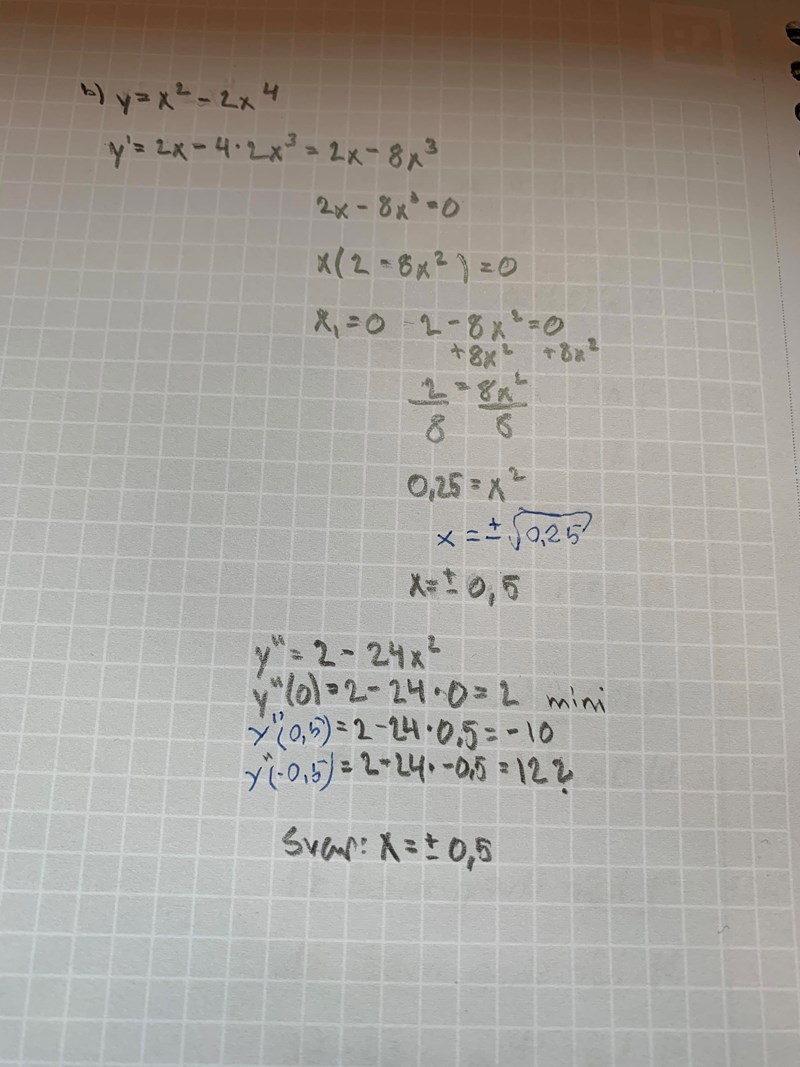 b) y = x² - 2x⁴
y' = 2x - 4·2x³ = 2x - 8x³
2x - 8x³ = 0
x(2 - 8x²) = 0
x₁ = 0 2 - 8x² = 0
+8x² +8x²
2/8 = 8x²/8
0,25 = x²
x = ±√0,25
x = ± 0,5
y'' = 2 - 24x²
y''(0) = 2 - 24·0 = 2 mini
y''(0,5) = 2 - 24·0,5 = -10
y''(-0,5) = 2 - 24·-0,5 = 12 ?
Svar: x = ± 0,5